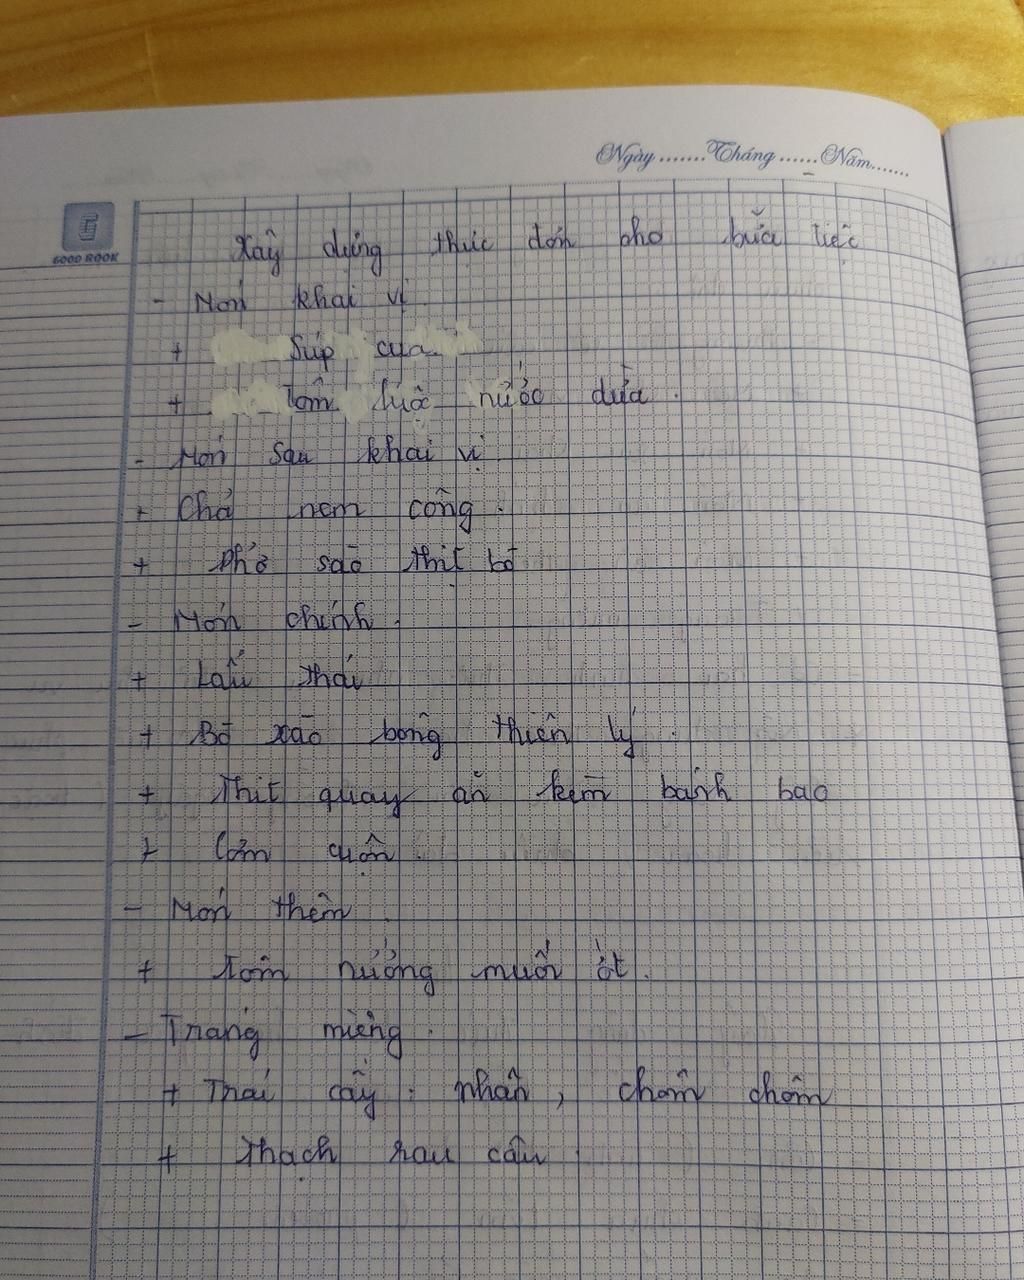 Ngày.......Tháng......Năm.......
GOOD BOOK
Xây dựng thực đơn cho bữa tiệc
- Món khai vị
+ Súp cua
+ Tôm luộc nước dừa.
- Món sau khai vị
+ Chả nem công.
+ Phở sào thịt bò
- Món chính.
+ Lẩu thái
+ Bò xào bông thiên lý.
+ Thịt quay ăn kèm bánh bao
+ Cơm cuộn.
- Món thêm
+ Tôm nướng muối ớt.
- Tráng miệng.
+ Trái cây: nhãn, chôm chôm
+ Thạch rau câu.